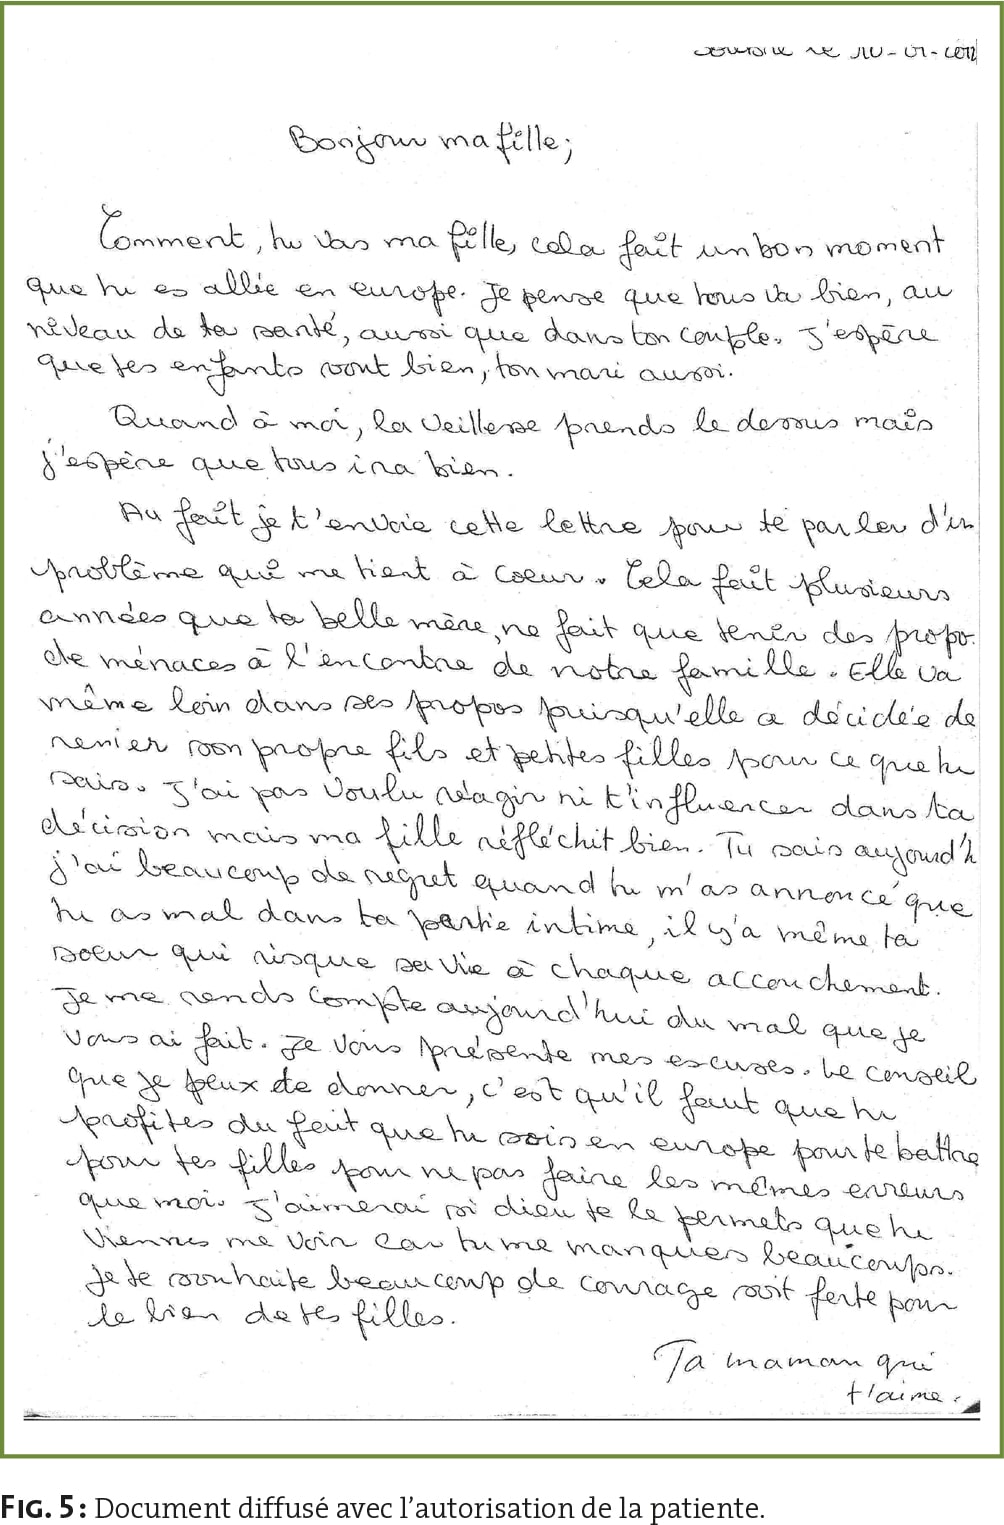 Bonjour ma fille;
Comment, tu vas ma fille, cela faît un bon moment
que tu es allée en europe. Je pense que tous va bien, au
nîveau de ta santé, aussi que dans ton couple. J'espère
que tes enfants vont bien, ton mari aussi.
Quand à moi, la veillesse prends le dessus maîs
j'espère que tous ira bien.
Au faît je t'envoie cette lettre pour te parler d'un
problème quî me tient à coeur. Cela faît plusieurs
années que ta belle mère, ne fait que tenîr des propo
de ménaces à l'encontre de notre famille. Elle va
même loin dans ses propos puisqu'elle a décidée de
renier son propre fils et petites filles pour ce que tu
sais. J'ai pas voulu réagir ni t'influencer dans ta
décision mais ma fille réfléchit bien. Tu sais aujourd'h
j'ai beaucoup de regret quand tu m'as annoncé que
tu as mal dans ta partie intime, il y'a même ta
soeur qui risque sa vie à chaque accouchement.
Je me rends compte aujourd'hui du mal que je
vous ai fait. Je vous présente mes escuses. Le conseil
que je peux te donner, c'est qu'il faut que tu
profites du fait que tu sois en europe pour te battre
pour tes filles pour ne pas faire les mêmes erreurs
que moi. J'aimerai si dieu te le permets que tu
viennes me voir car tu me manques beaucoups.
Je te souhaite beaucoup de courage soit forte pour
le bien de tes filles.
Ta maman qui
t'aime.
FIG. 5 : Document diffusé avec l'autorisation de la patiente.